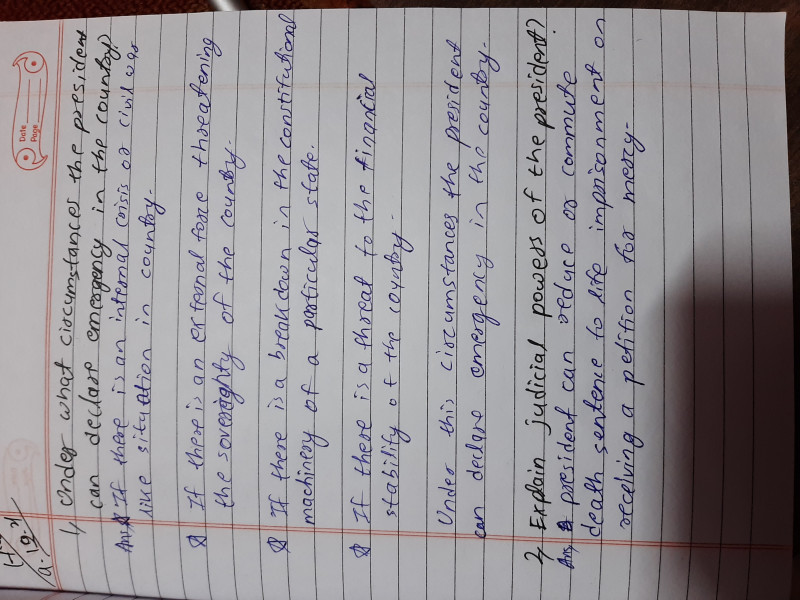 Date
Page
1, Under what circumstances the president
can declare emergency in the country?
Ans If there is an internal crisis or civil war
like situation in country.
If there is an external force threatening
the sovereaghty of the country.
If there is a breakdown in the constitutional
machinery of a particular state.
If there is a threat to the financial
stability of the country.
Under this circumstances the president
can declare emergency in the country.
2, Explain judicial powers of the president?
Ans, president can reduce or commute
death sentence to life imprisonment on
receiving a petition for mercy.